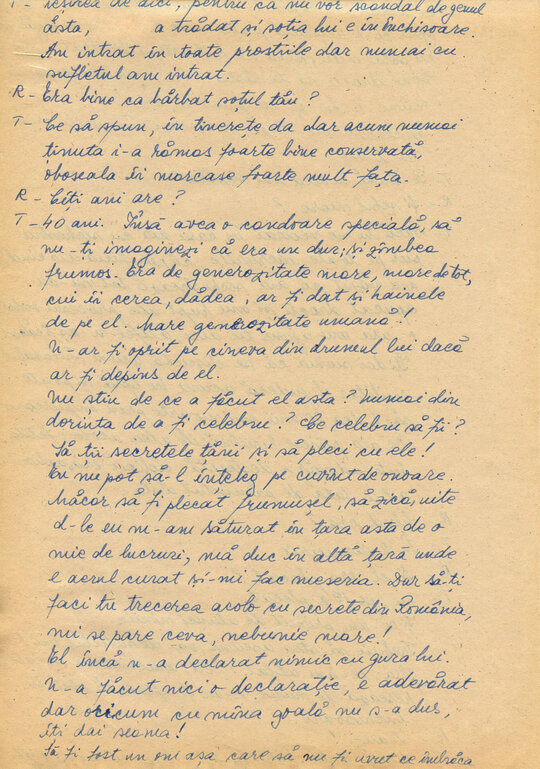 T- ieșirea de aici, pentru că nu vor scandal de genul
ăsta, a trădat și soția lui e în închisoare.
Am intrat în toate prostiile dar numai cu
sufletul am intrat.
R- Era bine ca bărbat soțul tău?
T- Ce să spun, în tinerețe da dar acum numai
ținuta i-a rămas foarte bine conservată,
oboseala îi marcase foarte mult fața.
R- Cîți ani are?
T-40 ani. Însă avea o candoare specială, să
nu-ți imaginezi că era un dur; și zîmbea
frumos. Era de generozitate mare, mare de tot,
cui îi cerea, dădea, ar fi dat și hainele
de pe el. Mare generozitate umană!
N-ar fi oprit pe cineva din drumul lui dacă
ar fi depins de el.
Nu știu de ce a făcut el asta? Numai din
dorința de a fi celebru? Ce celebru să fii?
Să ții secretele țării și să pleci cu ele!
Eu nu pot să-l înțeleg pe cuvînt de onoare.
Măcar să fi plecat frumușel, să zică, uite
d-le eu m-am săturat în țara asta de o
mie de lucruri, mă duc în altă țară unde
e aerul curat și-mi fac meseria. Dar să-ți
faci tu trecerea acolo cu secrete din România,
mi se pare ceva, nebunie mare!
El încă n-a declarat nimic cu gura lui.
N-a făcut nici o declarație, e adevărat
dar oricum cu mîna goală nu s-a dus,
îți dai seama!
Să fi fost un om așa care să nu fi avut ce îmbrăca